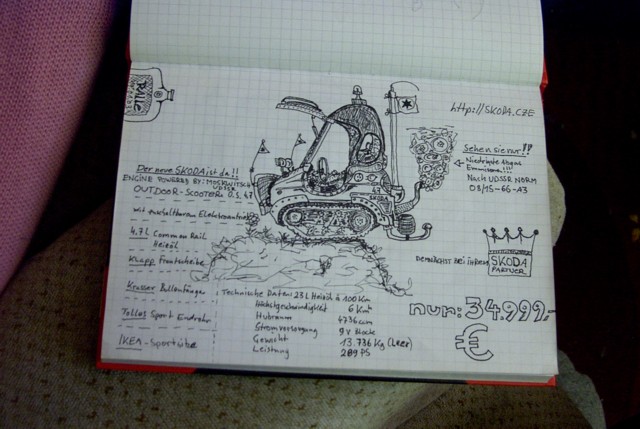 http://SKODA.CZE
Sehen sie nur!!
Niedrigste Abgas
Emmisionen!!!
Nach UDSSR NORM
08/15-66-A3
Der neue SKODA ist da!!
ENGINE POWERED BY: MOSKWITSCH
UDSSR
OUTDOOR-SCOOTER 0.1.47
mit zuschaltbarem Elektroantrieb
4,7L Common Rail
Heizöl
Klapp Frontscheibe
Krasser Bullenfänger
Tolles Sport Endrohr
IKEA-Sportsitze
DEMNÄCHST BEI IHREM
SKODA
PARTNER
Technische Daten: 23L Heizöl à 100 Km
Höchstgeschwindigkeit 6 Km
Hubraum 4736 ccm
Stromversorgung 9V Block
Gewicht 13.736 Kg (Leer)
Leistung 289 PS
nur: 34.999,-
€